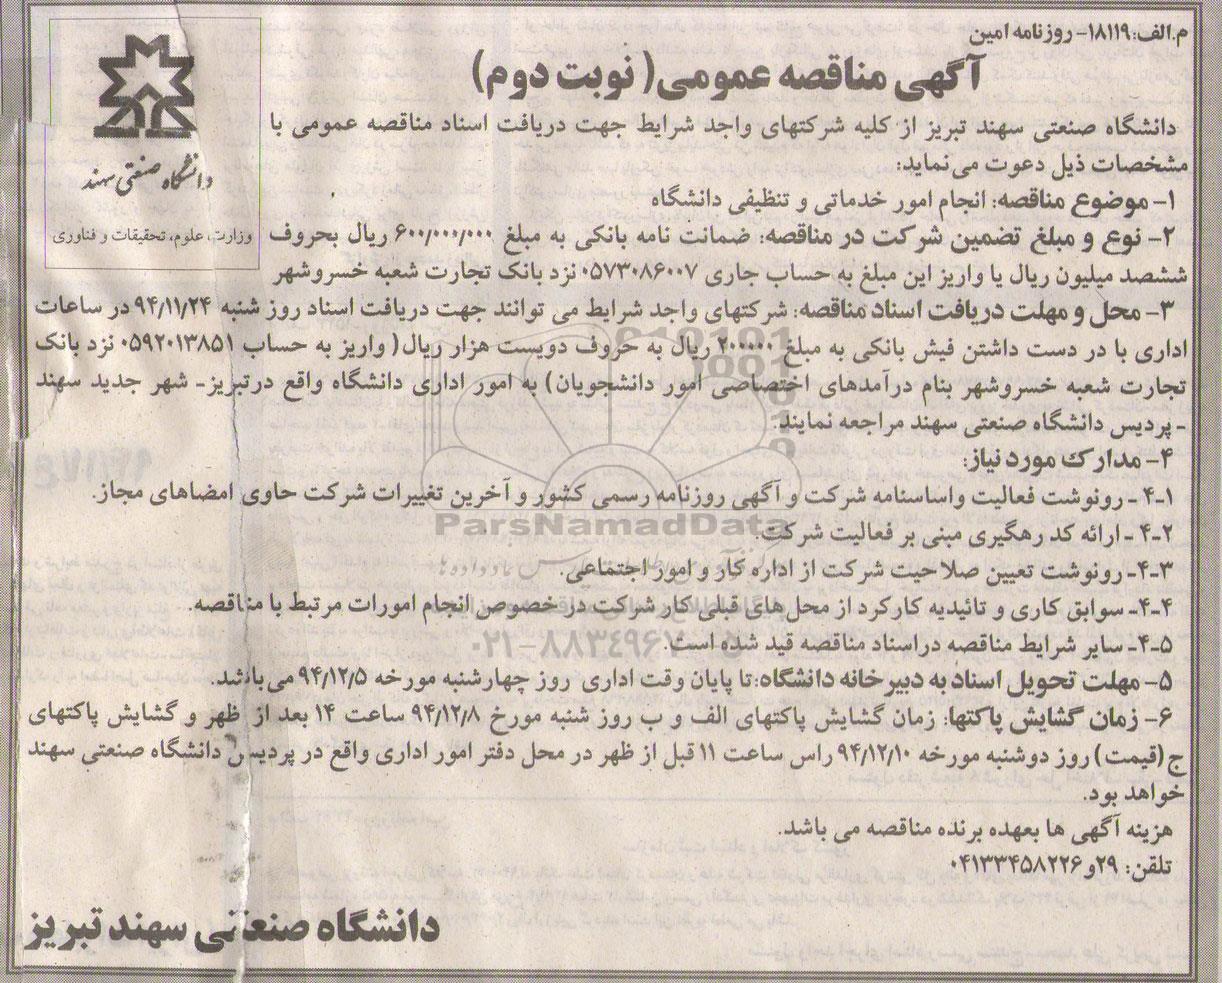 م.الف:۱۸۱۱۹- روزنامه امین
آگهی مناقصه عمومی( نوبت دوم)
دانشگاه صنعتی سهند
وزارت، علوم، تحقیقات و فناوری
دانشگاه صنعتی سهند تبریز از کلیه شرکتهای واجد شرایط جهت دریافت اسناد مناقصه عمومی با
مشخصات ذیل دعوت می‌نماید:
۱- موضوع مناقصه: انجام امور خدماتی و تنظیفی دانشگاه
۲- نوع و مبلغ تضمین شرکت در مناقصه: ضمانت نامه بانکی به مبلغ ۶۰۰/۰۰۰/۰۰۰ ریال بحروف
ششصد میلیون ریال یا واریز این مبلغ به حساب جاری ۰۵۷۳۰۸۶۰۰۷ نزد بانک تجارت شعبه خسروشهر
۳- محل و مهلت دریافت اسناد مناقصه: شرکتهای واجد شرایط می توانند جهت دریافت اسناد روز شنبه ۹۴/۱۱/۲۴ در ساعات
اداری با در دست داشتن فیش بانکی به مبلغ ۲۰۰۰۰۰ ریال به حروف دویست هزار ریال( واریز به حساب ۰۵۹۲۰۱۳۸۵۱ نزد بانک
تجارت شعبه خسروشهر بنام درآمدهای اختصاصی امور دانشجویان) به امور اداری دانشگاه واقع درتبریز- شهر جدید سهند
- پردیس دانشگاه صنعتی سهند مراجعه نمایند.
۴- مدارک مورد نیاز:
۴-۱ - رونوشت فعالیت واساسنامه شرکت و آگهی روزنامه رسمی کشور و آخرین تغییرات شرکت حاوی امضاهای مجاز.
۴-۲ - ارائه کد رهگیری مبنی بر فعالیت شرکت.
۴-۳- رونوشت تعیین صلاحیت شرکت از اداره کار و امور اجتماعی.
۴-۴- سوابق کاری و تائیدیه کارکرد از محل های قبلی کار شرکت در خصوص انجام امورات مرتبط با مناقصه.
۴-۵- سایر شرایط مناقصه دراسناد مناقصه قید شده است.
۵- مهلت تحویل اسناد به دبیرخانه دانشگاه: تا پایان وقت اداری روز چهارشنبه مورخه ۹۴/۱۲/۵ می‌باشد.
۶- زمان گشایش پاکتها: زمان گشایش پاکتهای الف و ب روز شنبه مورخ ۹۴/۱۲/۸ ساعت ۱۴ بعد از ظهر و گشایش پاکتهای
ج (قیمت) روز دوشنبه مورخه ۹۴/۱۲/۱۰ راس ساعت ۱۱ قبل از ظهر در محل دفتر امور اداری واقع در پردیس دانشگاه صنعتی سهند
خواهد بود.
هزینه آگهی ها بعهده برنده مناقصه می باشد.
تلفن: ۲۹و۰۴۱۳۳۴۵۸۲۲۶
دانشگاه صنعتی سهند تبریز
ParsNamadData
۰۲۱-۸۸۳۴۹۶۷۰-۵